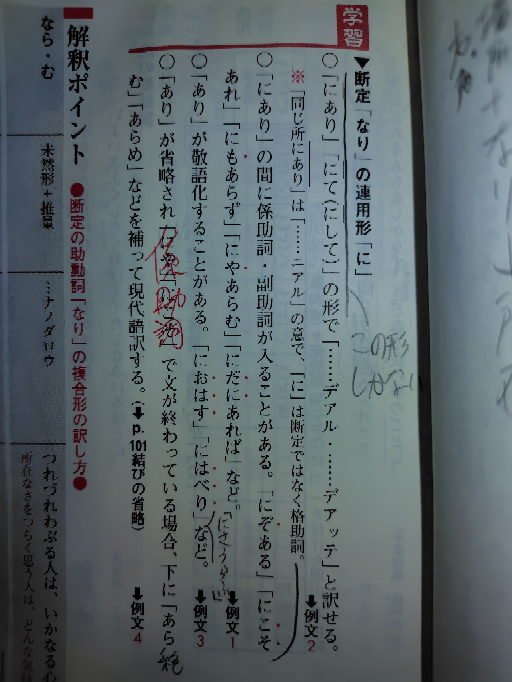 学習
▼断定「なり」の連用形「に」
この形
しかない
○「にあり」「にて(にして)」の形で「……デアル・……デアッテ」と訳せる。
➡例文2
※「同じ所にあり」は「……ニアル」の意で、「に」は断定ではなく格助詞。
○「にあり」の間に係助詞・副助詞が入ることがある。「にぞある」「にこそ
あれ」「にもあらず」「にやあらむ」「にだにあれば」など。
➡例文1
○「あり」が敬語化することがある。「におはす」「にはべり」など。
➡例文3
○「あり」が省略され
係助詞
で文が終わっている場合、下に「あら
む」「あらめ」などを補って現代語訳する。(➡p.101結びの省略)
➡例文4
解釈ポイント ●断定の助動詞「なり」の複合形の訳し方●
なら・む
未然形+推量
…ナノダロウ
つれづれわぶる人は、いかなる心
所在なさをつらく思う人は、どんな気持